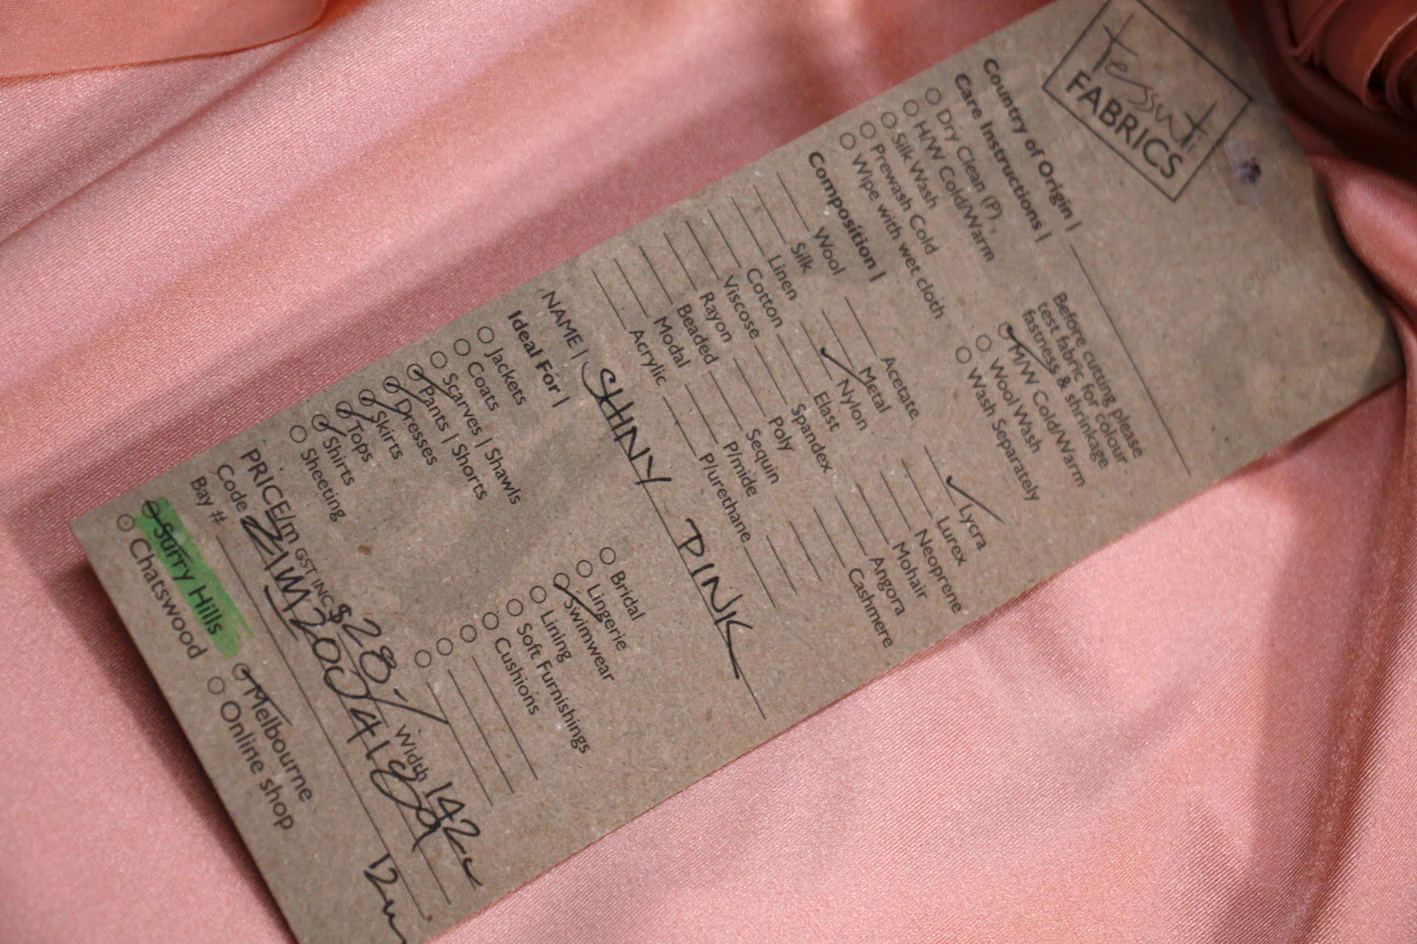 Tessuti
FABRICS
Country of Origin |
Care Instructions |
Dry Clean (P)
H/W Cold/Warm
Silk Wash
Prewash Cold
Wipe with wet cloth
Before cutting please
test fabric for colour
fastness & shrinkage
M/W Cold/Warm
Wool Wash
Wash Separately
Composition |
Wool
Silk
Linen
Cotton
Viscose
Rayon
Beaded
Modal
Acrylic
Acetate
Metal
Nylon
Elast
Spandex
Poly
Sequin
P/mide
P/urethane
Lycra
Lurex
Neoprene
Mohair
Angora
Cashmere
NAME | SHINY PINK
Ideal For |
Jackets
Coats
Scarves | Shawls
Pants | Shorts
Dresses
Skirts
Tops
Shirts
Sheeting
Bridal
Lingerie
Swimwear
Lining
Soft Furnishings
Cushions
PRICE/m GST INC $28/- Width 142
Code
Bay #
Surry Hills
Chatswood
Melbourne
Online shop